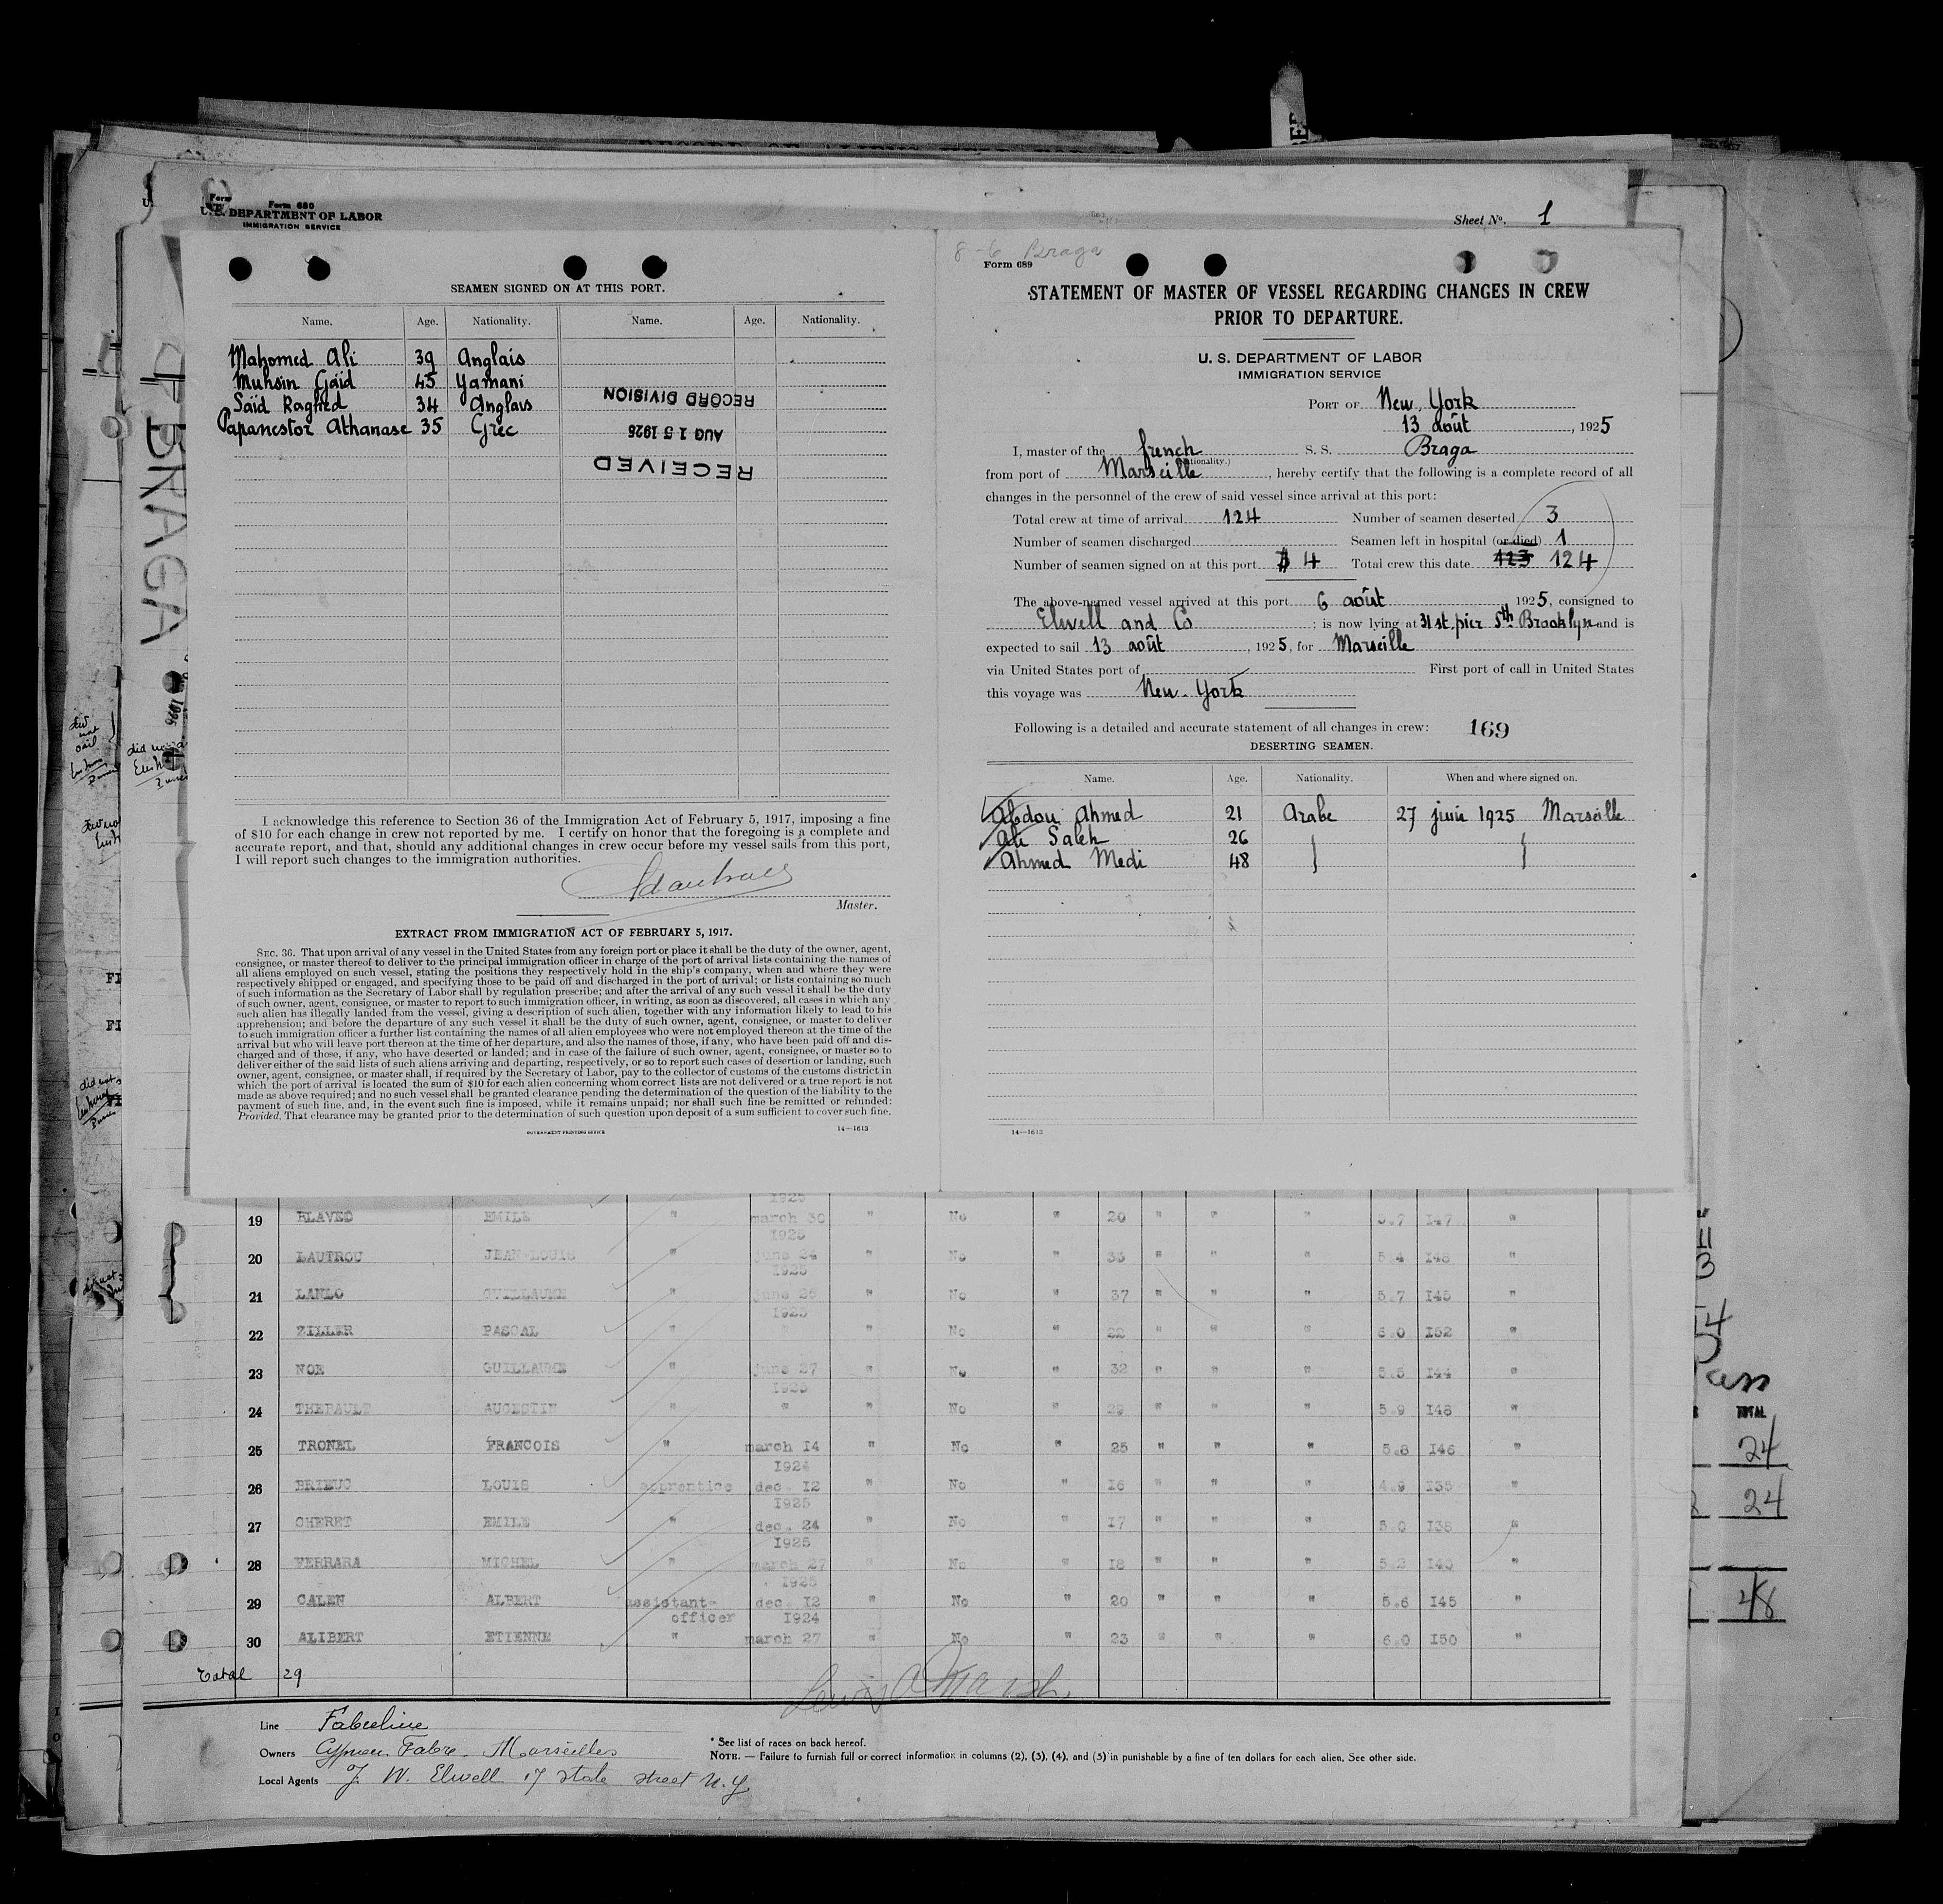 Form 680
U. S. DEPARTMENT OF LABOR
IMMIGRATION SERVICE
Sheet No. 1
BRAGA
SEAMEN SIGNED ON AT THIS PORT.
Name. Age. Nationality. Name. Age. Nationality.
Mahomed Ali 39 Anglais
Muhsin Gaid 45 Yamani
Saïd Raghed 34 Anglais
Papanestor Athanase 35 Grec
RECORD DIVISION
AUG 15 1925
RECEIVED
I acknowledge this reference to Section 36 of the Immigration Act of February 5, 1917, imposing a fine
of $10 for each change in crew not reported by me. I certify on honor that the foregoing is a complete and
accurate report, and that, should any additional changes in crew occur before my vessel sails from this port,
I will report such changes to the immigration authorities.
Master.
EXTRACT FROM IMMIGRATION ACT OF FEBRUARY 5, 1917.
SEC. 36. That upon arrival of any vessel in the United States from any foreign port or place it shall be the duty of the owner, agent,
consignee, or master thereof to deliver to the principal immigration officer in charge of the port of arrival lists containing the names of
all aliens employed on such vessel, stating the positions they respectively hold in the ship's company, when and where they were
respectively shipped or engaged, and specifying those to be paid off and discharged in the port of arrival; or lists containing so much
of such information as the Secretary of Labor shall by regulation prescribe; and after the arrival of any such vessel it shall be the duty
of such owner, agent, consignee, or master to report to such immigration officer, in writing, as soon as discovered, all cases in which any
such alien has illegally landed from the vessel, giving a description of such alien, together with any information likely to lead to his
apprehension; and before the departure of any such vessel it shall be the duty of such owner, agent, consignee, or master to deliver
to such immigration officer a further list containing the names of all alien employees who were not employed thereon at the time of the
arrival but who will leave port thereon at the time of her departure, and also the names of those, if any, who have been paid off and dis-
charged and of those, if any, who have deserted or landed; and in case of the failure of such owner, agent, consignee, or master so to
deliver either of the said lists of such aliens arriving and departing, respectively, or so to report such cases of desertion or landing, such
owner, agent, consignee, or master shall, if required by the Secretary of Labor, pay to the collector of customs of the customs district in
which the port of arrival is located the sum of $10 for each alien concerning whom correct lists are not delivered or a true report is not
made as above required; and no such vessel shall be granted clearance pending the determination of the question of the liability to the
payment of such fine, and, in the event such fine is imposed, while it remains unpaid; nor shall such fine be remitted or refunded:
Provided, That clearance may be granted prior to the determination of such question upon deposit of a sum sufficient to cover such fine.
GOVERNMENT PRINTING OFFICE
14—1613
8-6 Braga
Form 689
STATEMENT OF MASTER OF VESSEL REGARDING CHANGES IN CREW
PRIOR TO DEPARTURE.
U. S. DEPARTMENT OF LABOR
IMMIGRATION SERVICE
PORT OF New York
13 août, 1925
I, master of the french S. S. Braga
(Nationality.)
from port of Marseille, hereby certify that the following is a complete record of all
changes in the personnel of the crew of said vessel since arrival at this port:
Total crew at time of arrival 124 Number of seamen deserted 3
Number of seamen discharged Seamen left in hospital (or died) 1
Number of seamen signed on at this port 4 Total crew this date 123 124
The above-named vessel arrived at this port 6 août 1925, consigned to
Elwell and Co; is now lying at 31 st. pier 5th Brooklyn and is
expected to sail 13 août, 1925, for Marseille
via United States port of First port of call in United States
this voyage was New-York
Following is a detailed and accurate statement of all changes in crew: 169
DESERTING SEAMEN.
Name. Age. Nationality. When and where signed on.
Abdou Ahmed 21 Arabe 27 juin 1925 Marseille
Ali Saleh 26
Ahmed Medi 48
14—1613
1925
19 BLAVEC EMILE " march 30 " No " 20 " " " 5.7 147 "
1925
20 LAUTROU JEAN-LOUIS " june 24 " No " 33 " " " 5.4 148 "
1925
21 LANLO GUILLAUME " june 26 " No " 37 " " " 5.7 145 "
1925
22 ZILLER PASCAL " " " No " 22 " " " 6.0 152 "
23 NOE GUILLAUME " june 27 " No " 32 " " " 5.5 144 "
1925
24 THERAULT AUGUSTIN " " " No " 29 " " " 5.9 148 "
25 TRONEL FRANCOIS " march 14 " No " 25 " " " 5.8 146 "
1924
26 BRIEUC LOUIS apprentice dec. 12 " No " 16 " " " 4.9 135 "
1925
27 CHERET EMILE " dec. 24 " No " 17 " " " 5.0 138 "
1925
28 FERRARA MICHEL " march 27 " No " 18 " " " 5.2 140 "
1925
29 CALEN ALBERT assistant- dec. 12 " No " 20 " " " 5.6 145 "
officer 1924
30 ALIBERT ETIENNE " march 27 " No " 23 " " " 6.0 150 "
Total 29
Lewis A Marsh
Line Fabreline
Owners Cyprien Fabre. Marseilles
Local Agents J. W. Elwell 17 State street N.Y.
* See list of races on back hereof.
NOTE. — Failure to furnish full or correct information in columns (2), (3), (4), and (5) in punishable by a fine of ten dollars for each alien. See other side.
TOTAL
24
24
48